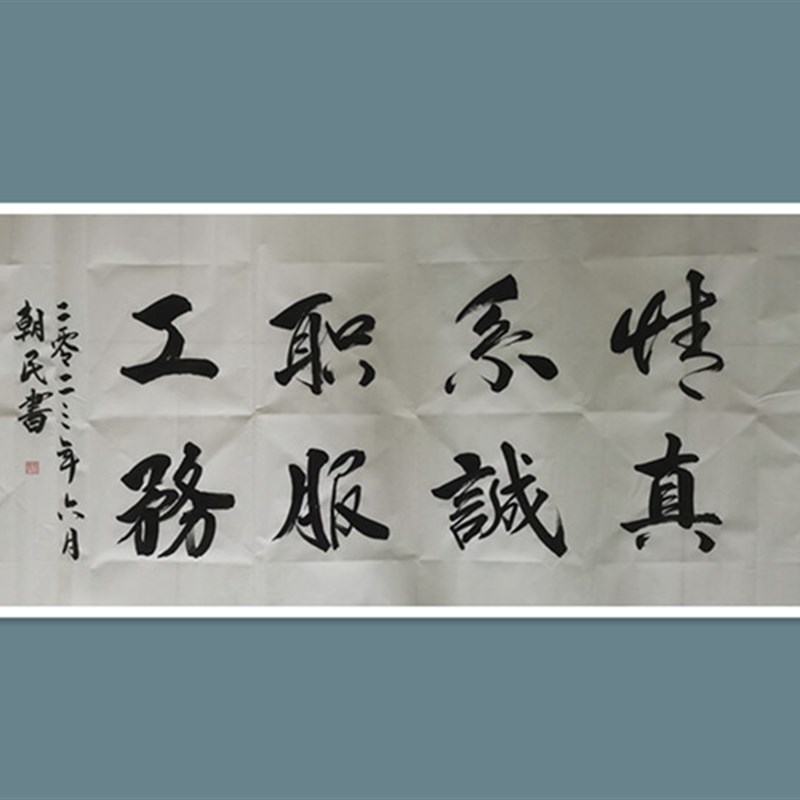 情系职工
真誠服務
二零二三年六月
朝民書